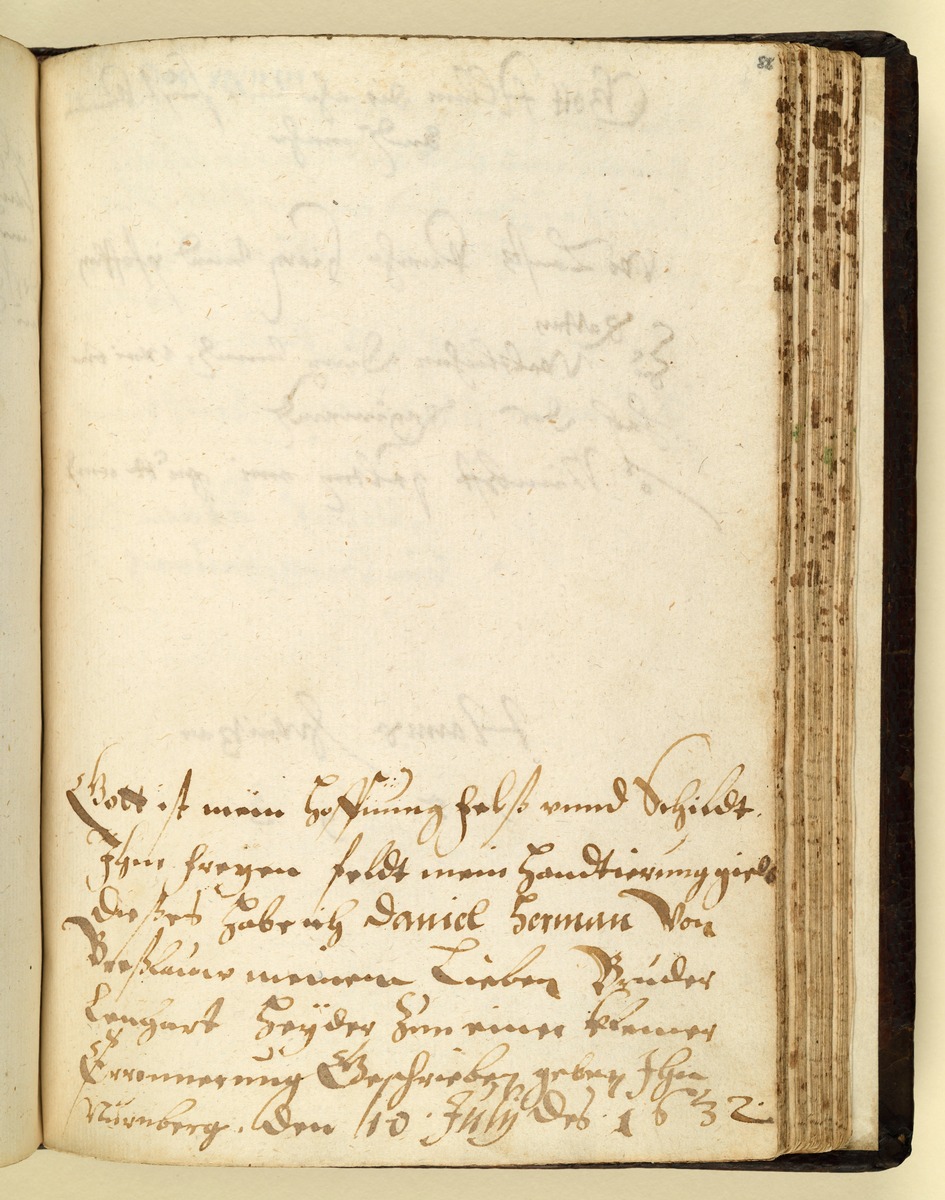 88
Gott ist mein Hoffnung felß vnnd Schildt.
Ihm freyen feldt mein Handtierung gielt
dießes Habe ich Daniel Herman Von
Breßlauw meinem Lieben Bruder
Lenhart Heyder Zun einer kleiner
Erronnerung Geschrieben geben Ihn
Nürnberg. den 10. July des. 1632.